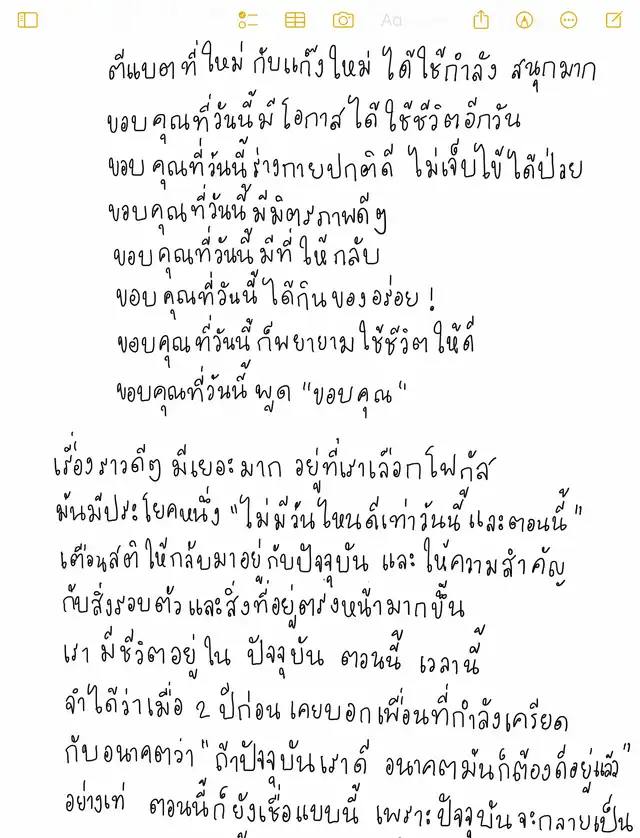 Aa
ตีแบตที่ใหม่ กับแก๊งใหม่ ได้ใช้กำลัง สนุกมาก
ขอบคุณที่วันนี้มีโอกาสได้ใช้ชีวิตอีกวัน
ขอบคุณที่วันนี้ร่างกายปกติดี ไม่เจ็บไข้ได้ป่วย
ขอบคุณที่วันนี้มีมิตรภาพดีๆ
ขอบคุณที่วันนี้มีที่ให้กลับ
ขอบคุณที่วันนี้ได้กินของอร่อย !
ขอบคุณที่วันนี้ก็พยายามใช้ชีวิตให้ดี
ขอบคุณที่วันนี้ พูด "ขอบคุณ"
เรื่องราวดีๆ มีเยอะมาก อยู่ที่เราเลือกโฟกัส
มันมีประโยคหนึ่ง "ไม่มีวันไหนดีเท่าวันนี้ และตอนนี้"
เตือนสติให้กลับมาอยู่กับปัจจุบัน และ ให้ความสำคัญ
กับสิ่งรอบตัว และสิ่งที่อยู่ตรงหน้ามากขึ้น
เรา มีชีวิตอยู่ใน ปัจจุบัน ตอนนี้ เวลานี้
จำได้ว่าเมื่อ 2 ปีก่อน เคยบอกเพื่อนที่กำลังเครียด
กับอนาคตว่า "ถ้าปัจจุบันเราดี อนาคตมันก็ต้องดีอยู่แล้ว"
อย่างเท่ ตอนนี้ก็ยังเชื่อแบบนี้ เพราะปัจจุบันจะกลายเป็น